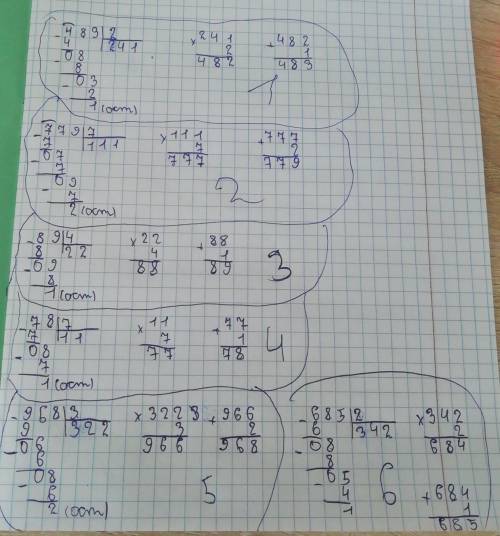 -489|2 ×241 +482
4 |241 2 1
-08 482 483
8
-03
2
1(ост)
1
-779|7 ×111 +777
7 |111 7 2
-07 777 779
7
-09
7
2(ост)
2
-89|4 ×22 +88
8 |22 4 1
-09 88 89
8
1(ост)
3
-78|7 ×11 +77
7 |11 7 1
-08 77 78
7
1(ост)
4
-968|3 ×322 +966
9 |322 3 2
-06 966 968
6
-08
6
2(ост)
5
-685|2 ×342
6 |342 2
-08 684
8
-05 +684
4 1
1 685
6